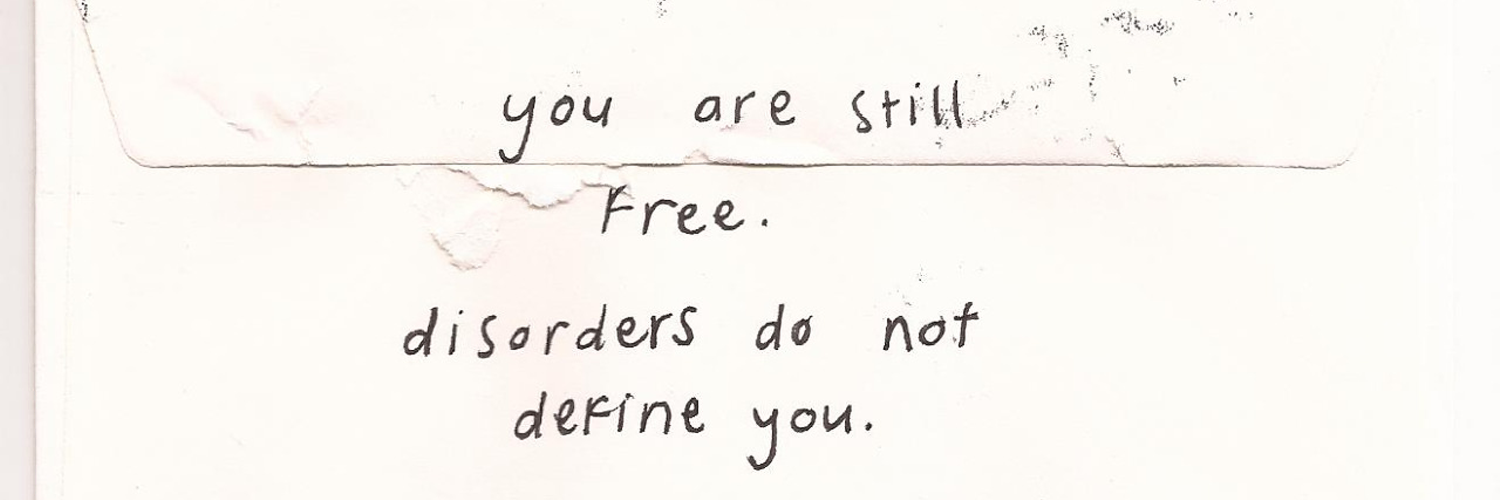 you are still
Free.
disorders do not
define you.